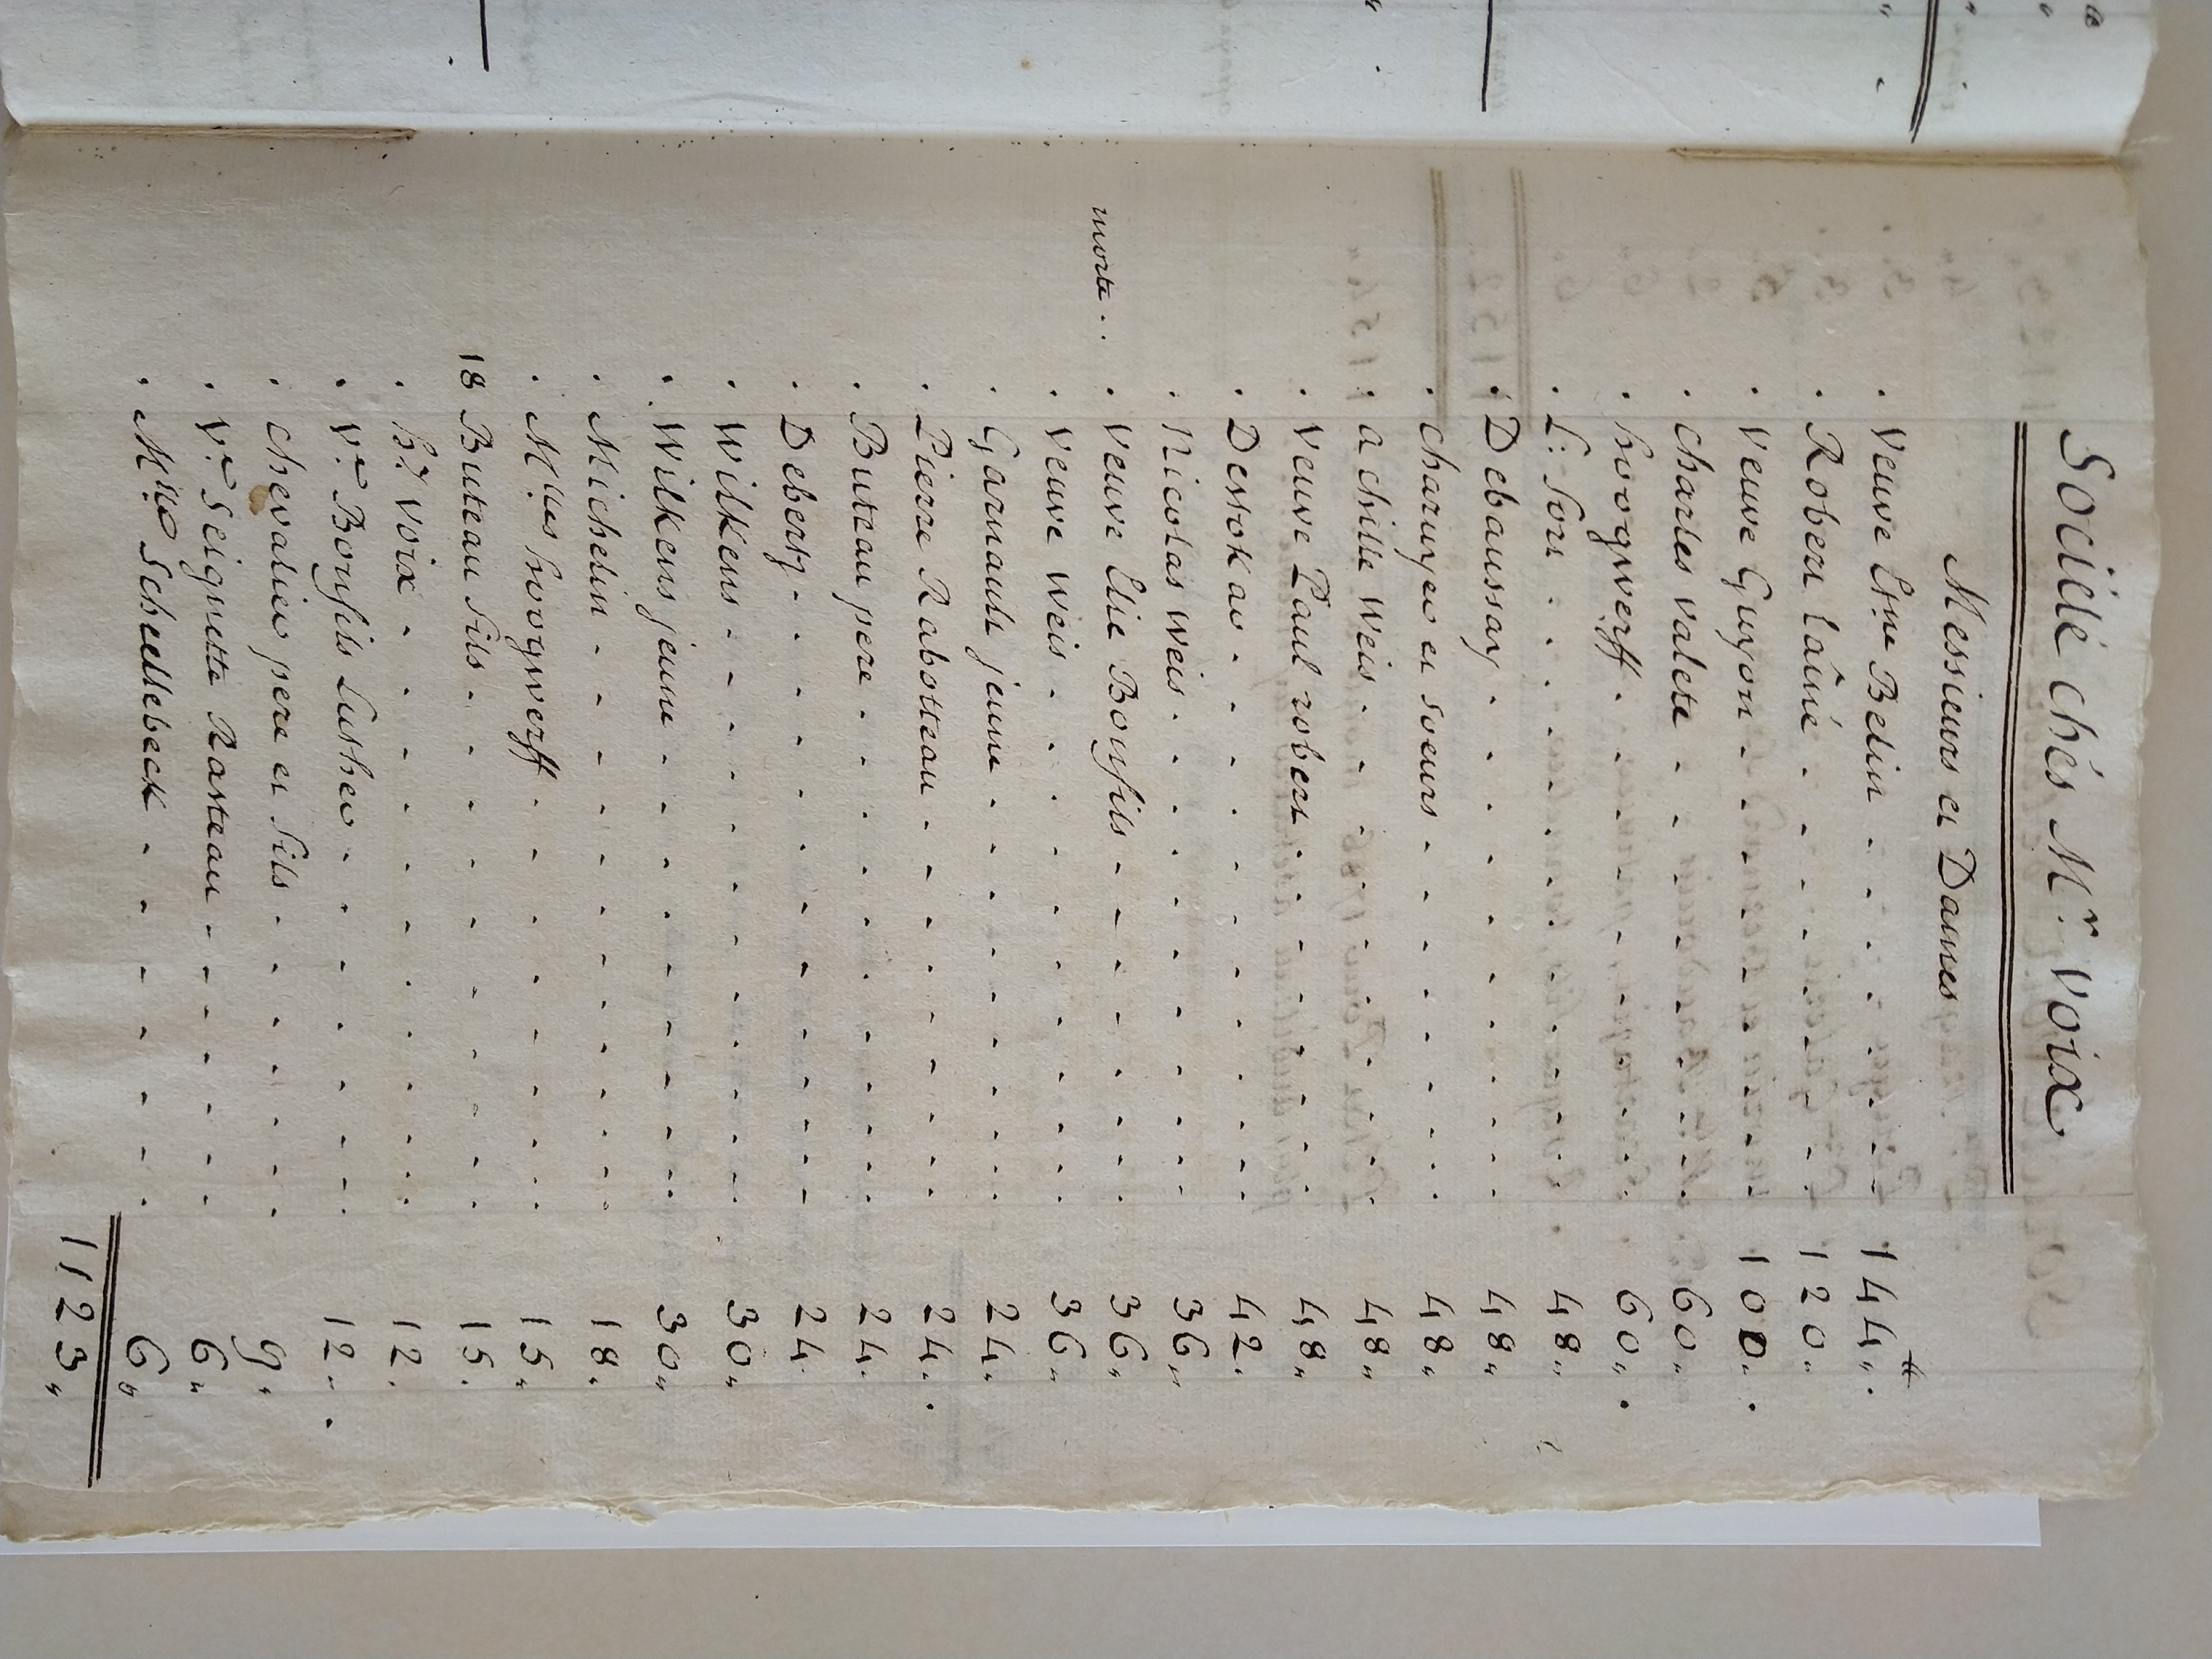 Société chés Mr. Voix
Messieurs et Dames
. Veuve Etne Belin - - - - - - 144 ₶ " .
. Robert lainé - - - - - - 120 "
. Veuve Guyon - - - - - - 100 . .
. Charles Valete - - - - - - 60 "
. hoogwerff - - - - - - 60 " .
. L: Son - - - - - - 48 "
. Debaussay - - - - - - 48 "
. Charuyer et soeurs - - - - - - 48 "
. achille Weis - - - - - - 48 "
. Veuve Paul robert - - - - - - 48 "
. Dessokar - - - - - - 42 .
. Nicolas Weis - - - - - - 36 "
morte . . . Veuve Elie Bonfils - - - - - - 36 "
. Veuve Weis - - - - - - 36 "
. Garnault jeune - - - - - - 24 "
. Pierre Rabotteau - - - - - - 24 . .
. Buteau pere - - - - - - 24 .
. Debersy - - - - - - 24 .
. Wilkens - - - - - - 30 "
. Wilkens jeune - - - - - - 30 "
. Michelin - - - - - - 18 .
. Mlles hoogwerff - - - - - - 15 "
18 Buteau fils - - - - - - 15 .
. hy Voix - - - - - - 12 .
. Ve Bonfils Luther - - - - - - 12 - .
. Chevalier pere et fils - - - - - - 9 .
. Ve Seignette Rasteau - - - - - - 6 "
. Mlle Schellebeck - - - - - - 6 "
1123 "